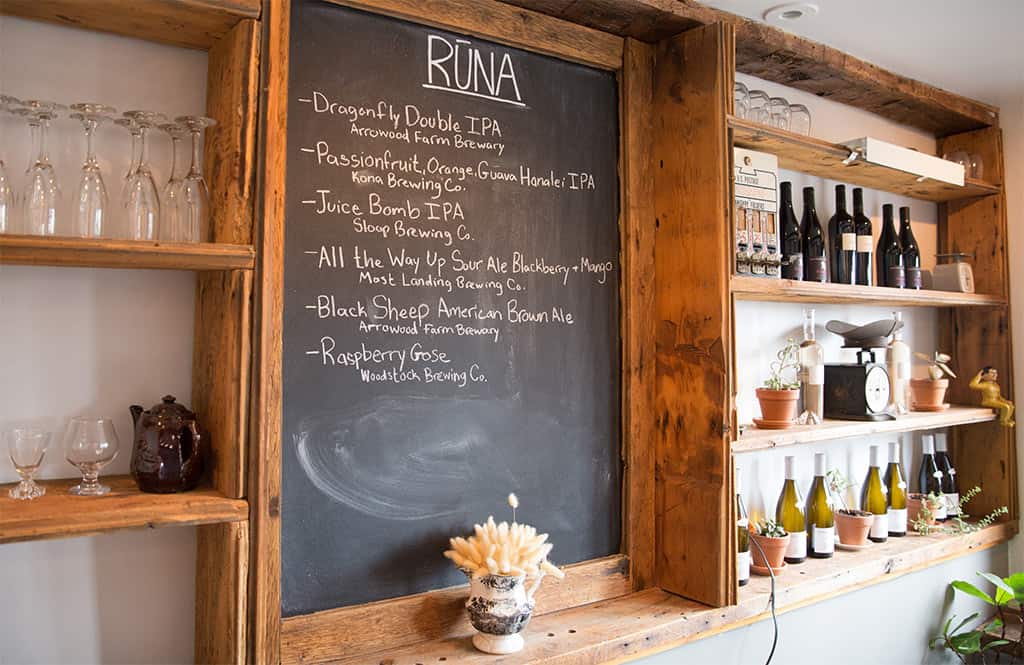 RŪNA
-Dragonfly Double IPA
Arrowood Farm Brewary
-Passionfruit, Orange, Guava Hanalei IPA
Kona Brewing Co.
-Juice Bomb IPA
Sloop Brewing Co.
-All the Way Up Sour Ale Blackberry + Mango
Most Landing Brewing Co.
-Black Sheep American Brown Ale
Arrowood Farm Brewary
-Raspberry Gose
Woodstock Brewing Co.
U.S. POSTAGE